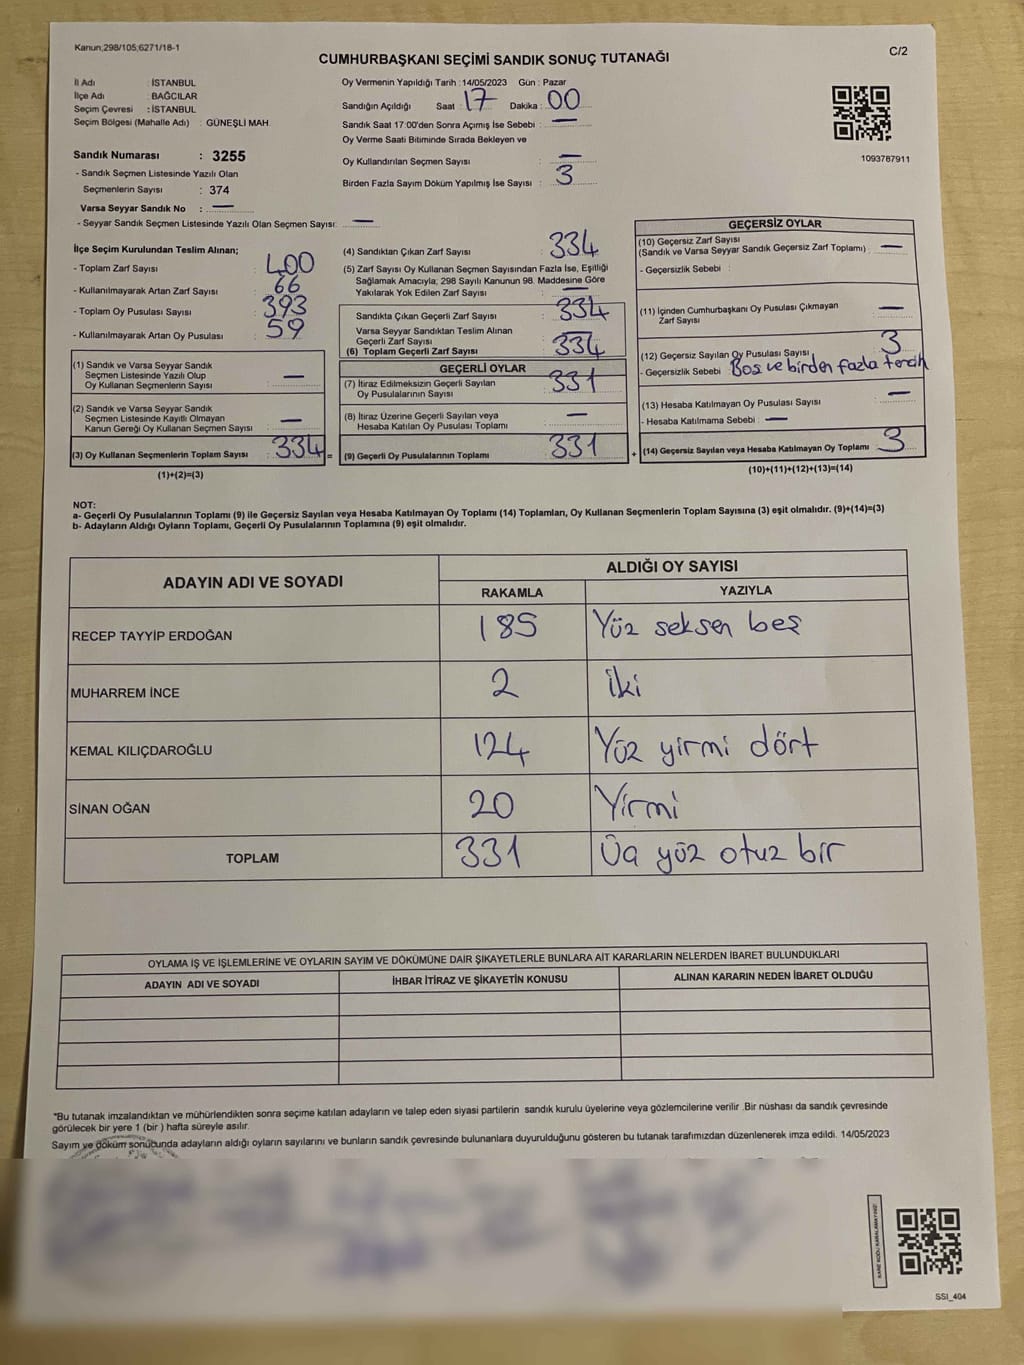 Kanun;298/105;6271/18-1
C/2
CUMHURBAŞKANI SEÇİMİ SANDIK SONUÇ TUTANAĞI
İl Adı : İSTANBUL
İlçe Adı : BAĞCILAR
Seçim Çevresi : İSTANBUL
Seçim Bölgesi (Mahalle Adı) : GÜNEŞLİ MAH.
Oy Vermenin Yapıldığı Tarih :14/05/2023 Gün : Pazar
Sandığın Açıldığı Saat : 17 Dakika : 00
Sandık Saat 17:00'den Sonra Açımış İse Sebebi : —
Oy Verme Saati Bitiminde Sırada Bekleyen ve
Oy Kullandırılan Seçmen Sayısı : —
Birden Fazla Sayım Döküm Yapılmış İse Sayısı : 3
1093787911
Sandık Numarası : 3255
- Sandık Seçmen Listesinde Yazılı Olan
Seçmenlerin Sayısı : 374
Varsa Seyyar Sandık No : —
- Seyyar Sandık Seçmen Listesinde Yazılı Olan Seçmen Sayısı: —
İlçe Seçim Kurulundan Teslim Alınan;
- Toplam Zarf Sayısı : 400
- Kullanılmayarak Artan Zarf Sayısı : 66
- Toplam Oy Pusulası Sayısı : 393
- Kullanılmayarak Artan Oy Pusulası : 59
(1) Sandık ve Varsa Seyyar Sandık
Seçmen Listesinde Yazılı Olup
Oy Kullanan Seçmenlerin Sayısı : —
(2) Sandık ve Varsa Seyyar Sandık
Seçmen Listesinde Kayıtlı Olmayan
Kanun Gereği Oy Kullanan Seçmen Sayısı : —
(3) Oy Kullanan Seçmenlerin Toplam Sayısı : 334 =
(1)+(2)=(3)
(4) Sandıktan Çıkan Zarf Sayısı : 334
(5) Zarf Sayısı Oy Kullanan Seçmen Sayısından Fazla İse, Eşitliği
Sağlamak Amacıyla; 298 Sayılı Kanunun 98. Maddesine Göre
Yakılarak Yok Edilen Zarf Sayısı : —
Sandıkta Çıkan Geçerli Zarf Sayısı : 334
Varsa Seyyar Sandıktan Teslim Alınan
Geçerli Zarf Sayısı : —
(6) Toplam Geçerli Zarf Sayısı : 334
GEÇERLİ OYLAR
(7) İtiraz Edilmeksizin Geçerli Sayılan
Oy Pusulalarının Sayısı : 331
(8) İtiraz Üzerine Geçerli Sayılan veya
Hesaba Katılan Oy Pusulası Toplamı : —
(9) Geçerli Oy Pusulalarının Toplamı : 331 +
GEÇERSİZ OYLAR
(10) Geçersiz Zarf Sayısı
(Sandık ve Varsa Seyyar Sandık Geçersiz Zarf Toplamı) : —
- Geçersizlik Sebebi :
(11) İçinden Cumhurbaşkanı Oy Pusulası Çıkmayan
Zarf Sayısı : —
(12) Geçersiz Sayılan Oy Pusulası Sayısı : 3
- Geçersizlik Sebebi : Boş ve birden fazla tercih
(13) Hesaba Katılmayan Oy Pusulası Sayısı : —
- Hesaba Katılmama Sebebi : —
(14) Geçersiz Sayılan veya Hesaba Katılmayan Oy Toplamı : 3
(10)+(11)+(12)+(13)=(14)
NOT:
a- Geçerli Oy Pusulalarının Toplamı (9) ile Geçersiz Sayılan veya Hesaba Katılmayan Oy Toplamı (14) Toplamları, Oy Kullanan Seçmenlerin Toplam Sayısına (3) eşit olmalıdır. (9)+(14)=(3)
b- Adayların Aldığı Oyların Toplamı, Geçerli Oy Pusulalarının Toplamına (9) eşit olmalıdır.
ADAYIN ADI VE SOYADI
ALDIĞI OY SAYISI
RAKAMLA YAZIYLA
RECEP TAYYİP ERDOĞAN 185 Yüz seksen beş
MUHARREM İNCE 2 İki
KEMAL KILIÇDAROĞLU 124 Yüz yirmi dört
SİNAN OĞAN 20 Yirmi
TOPLAM 331 Üa yüz otuz bir
OYLAMA İŞ VE İŞLEMLERİNE VE OYLARIN SAYIM VE DÖKÜMÜNE DAİR ŞİKAYETLERLE BUNLARA AİT KARARLARIN NELERDEN İBARET BULUNDUKLARI
ADAYIN ADI VE SOYADI
İHBAR İTİRAZ VE ŞİKAYETİN KONUSU
ALINAN KARARIN NEDEN İBARET OLDUĞU
"Bu tutanak imzalandıktan ve mühürlendikten sonra seçime katılan adayların ve talep eden siyasi partilerin sandık kurulu üyelerine veya gözlemcilerine verilir .Bir nüshası da sandık çevresinde
görülecek bir yere 1 (bir ) hafta süreyle asılır.
Sayım ve döküm sonucunda adayların aldığı oyların sayılarını ve bunların sandık çevresinde bulunanlara duyurulduğunu gösteren bu tutanak tarafımızdan düzenlenerek imza edildi. 14/05/2023
KARE KODU KARALAMAYINIZ!
SSI_404